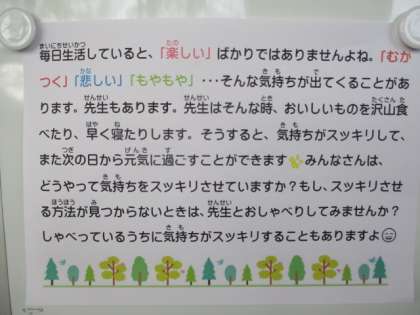 毎日生活していると、「楽しい」ばかりではありませんよね。「むか
つく」「悲しい」「もやもや」・・・そんな気持ちが出てくることがあ
ります。先生もあります。先生はそんな時、おいしいものを沢山食
べたり、早く寝たりします。そうすると、気持ちがスッキリして、
また次の日から元気に過ごすことができます みんなさんは、
どうやって気持ちをスッキリさせていますか？もし、スッキリさせ
る方法が見つからないときは、先生とおしゃべりしてみませんか？
しゃべっているうちに気持ちがスッキリすることもありますよ